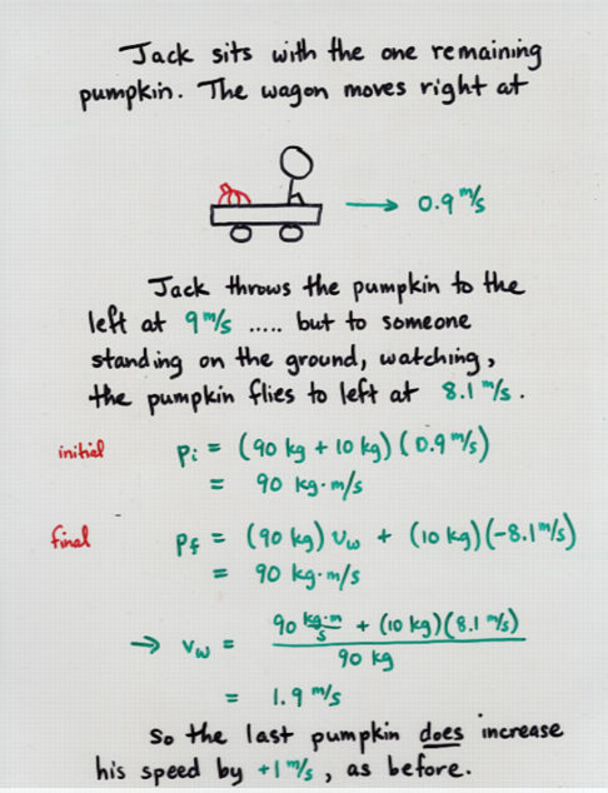 Jack sits with the one remaining
pumpkin. The wagon moves right at
→ 0.9 m/s
Jack throws the pumpkin to the
left at 9 m/s ..... but to someone
standing on the ground, watching,
the pumpkin flies to left at 8.1 m/s.
initial Pi = (90 kg + 10 kg)(0.9 m/s)
= 90 kg·m/s
final Pf = (90 kg) vw + (10 kg)(-8.1 m/s)
= 90 kg·m/s
→ vw = (90 kg·m/s + (10 kg)(8.1 m/s)) / 90 kg
= 1.9 m/s
So the last pumpkin does increase
his speed by +1 m/s, as before.